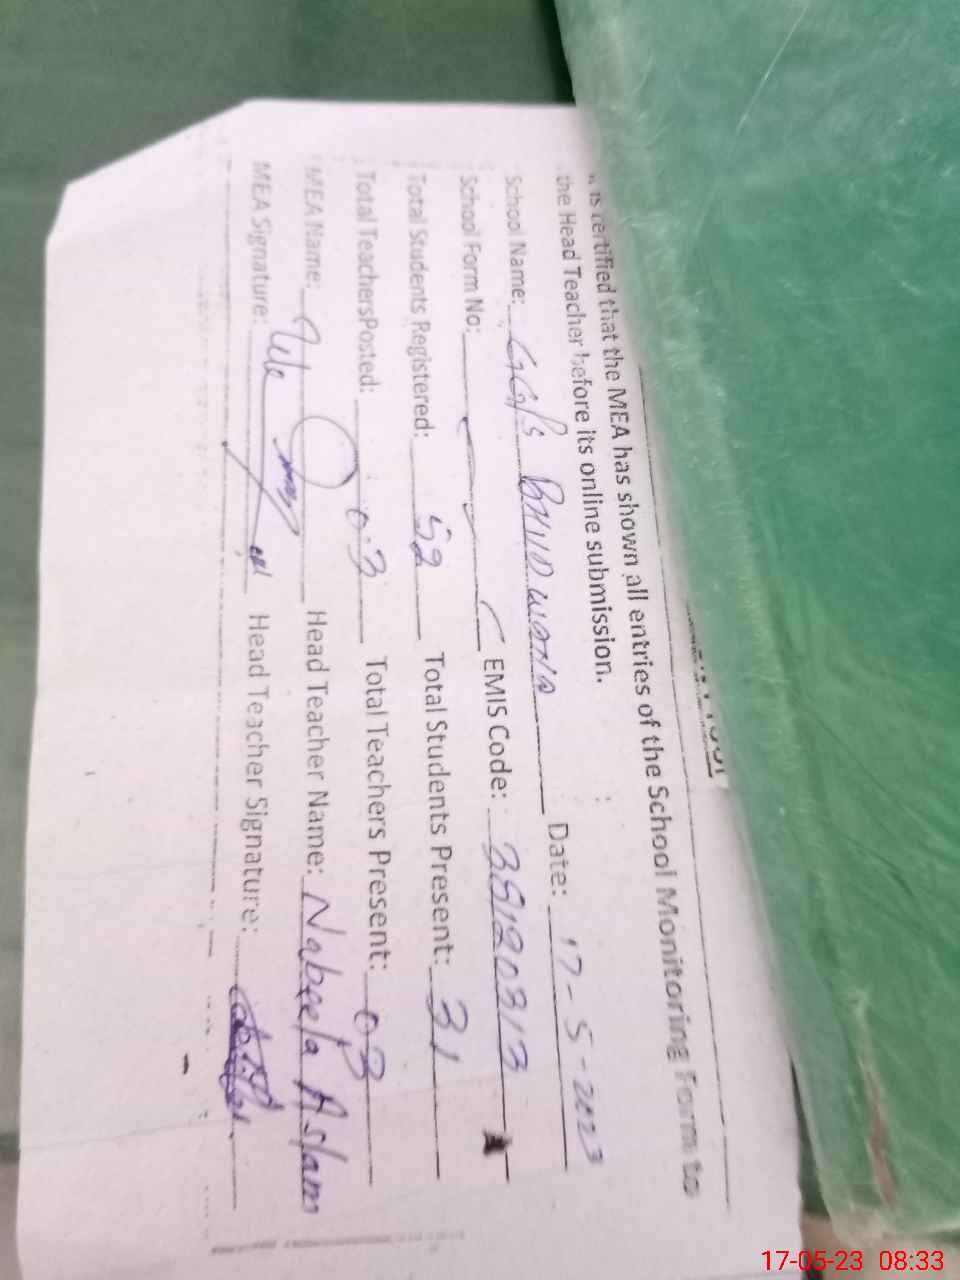 is certified that the MEA has shown all entries of the School Monitoring Form to
the Head Teacher before its online submission.
School Name: Date: 17-5-2023
School Form No: EMIS Code: 35120313
Total Students Registered: 52 Total Students Present: 31
Total TeachersPosted: 03 Total Teachers Present: 03
MEA Name: Head Teacher Name: Nabeela Aslam
MEA Signature: Head Teacher Signature:
17-05-23 08:33